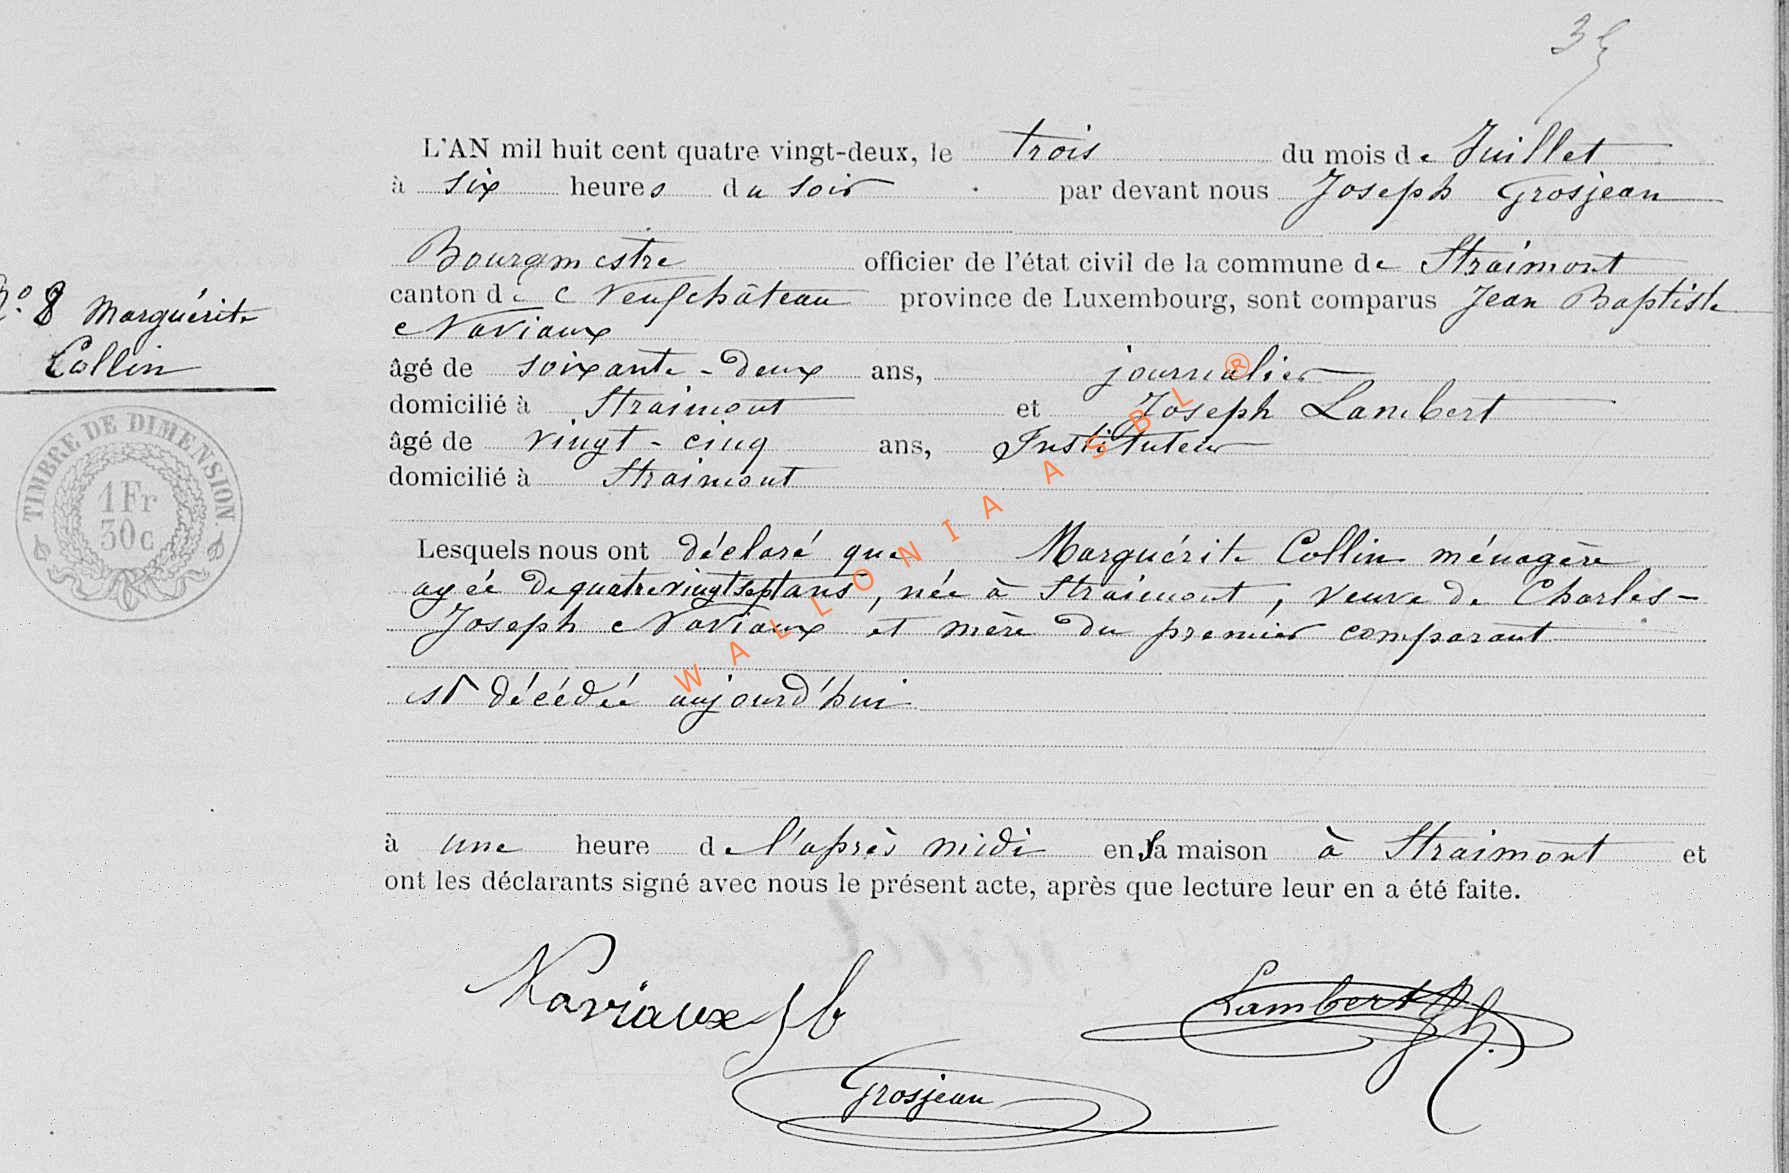 35
L'AN mil huit cent quatre vingt-deux, le trois du mois de Juillet
à six heures du soir par devant nous Joseph Grosjean
Bourgmestre officier de l'état civil de la commune de Straimont
canton de Neufchâteau province de Luxembourg, sont comparus Jean Baptiste
Naviaux
N° 8 Marguérite
Collin
âgé de soixante-deux ans, journalier
domicilié à Straimont et Joseph Lambert
âgé de vingt-cinq ans, Instituteur
domicilié à Straimont
TIMBRE DE DIMENSION
1 Fr
30 c
Lesquels nous ont déclaré que Marguérite Collin ménagère
agée de quatre vingt sept ans, née à Straimont, veuve de Charles-
Joseph Naviaux et mère du premier comparant
est décédée aujourd'hui
à une heure de l'après midi en sa maison à Straimont et
ont les déclarants signé avec nous le présent acte, après que lecture leur en a été faite.
Naviaux J b
Lambert Jh.
Grosjean
WALLONIA ASBL ®